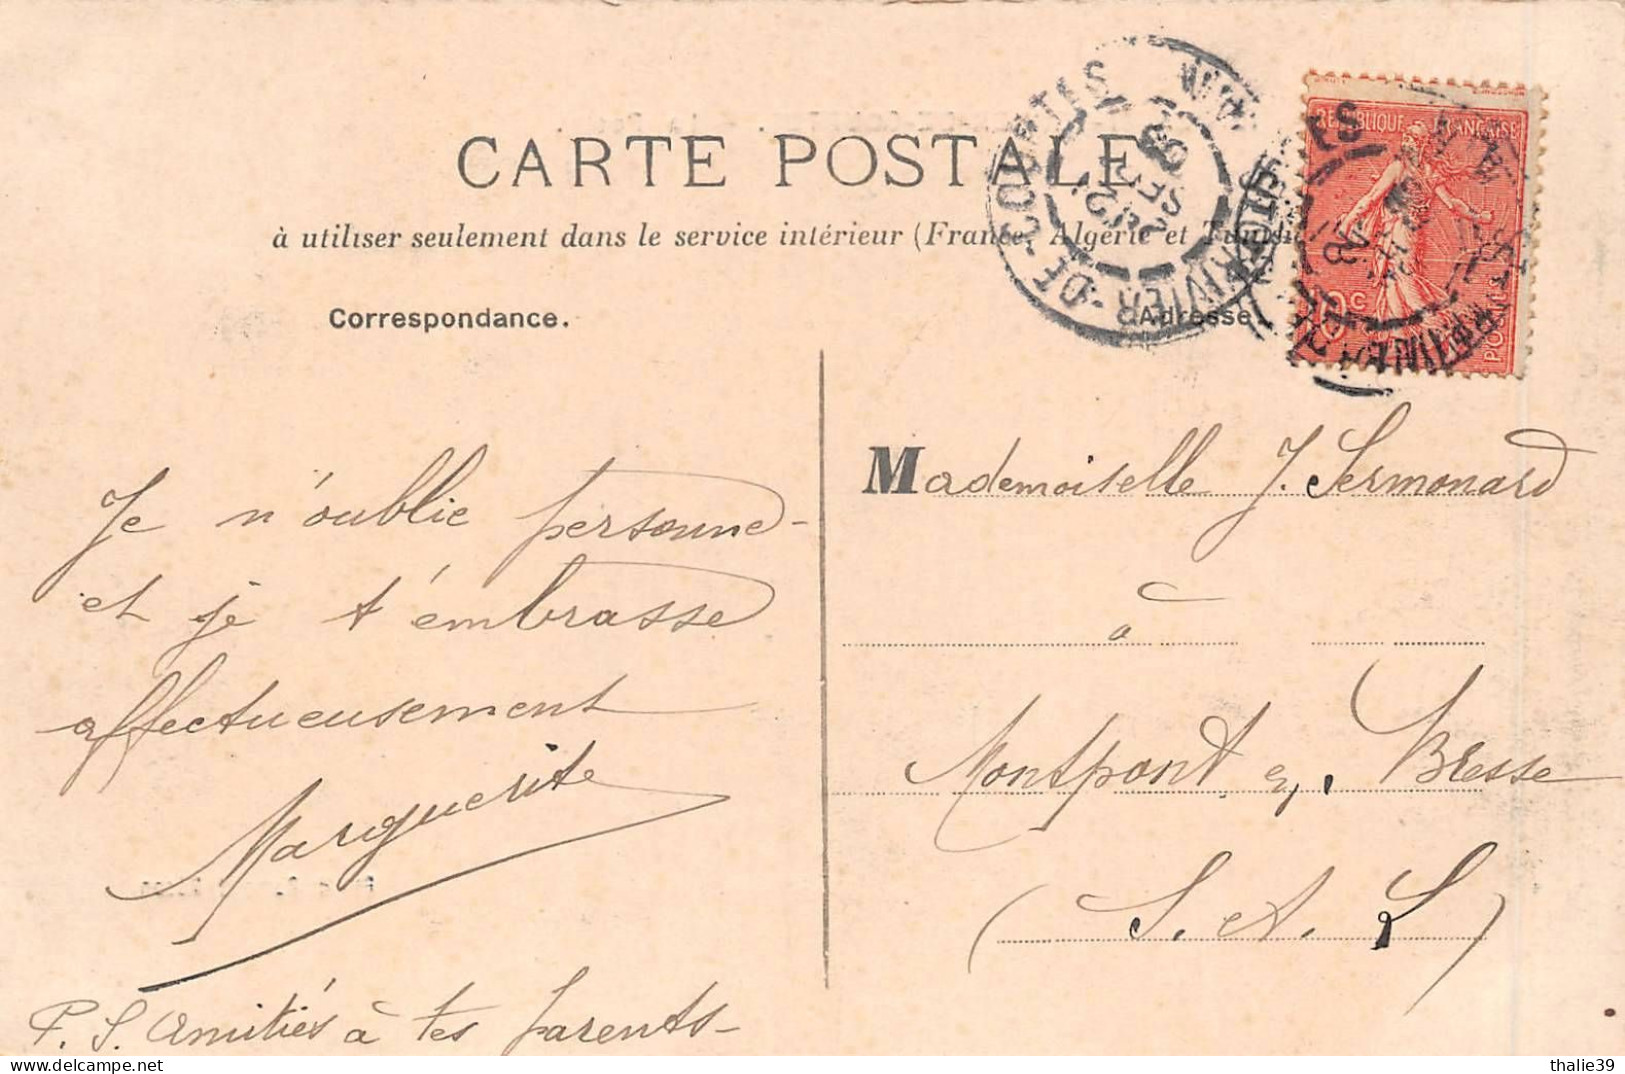 CARTE POSTALE
à utiliser seulement dans le service intérieur (France, Algérie et Tunisie
Correspondance.
Adresse
RÉPUBLIQUE FRANÇAISE
10c
POSTES
Je n'oublie personne
et je t'embrasse
affectueusement
Marguerite
P.S. Amitiés à tes parents
Mademoiselle J. Sermonard
à
Montpont en Bresse
(S. et. L)
thalie39